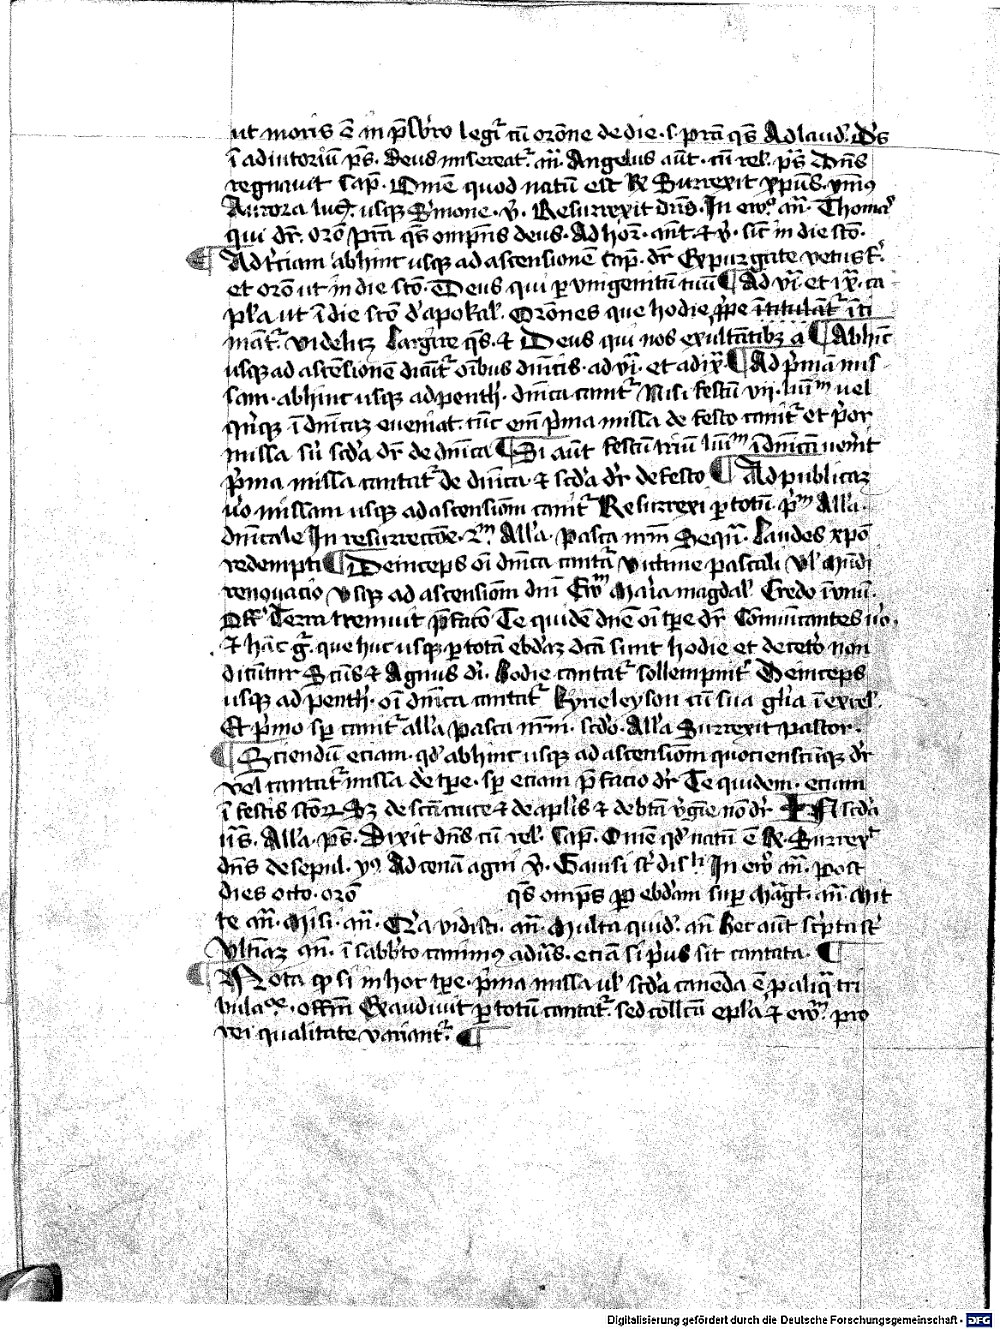 ut moris ē in p̄sb̄ro legit᷑ cū orōne de die · s · prā qs̄ Ad laud᷑. Ds̄
ī adiutoriū ps̄. Deus misereat᷑. an̄. Angelus aūt · cū rel᷑. ps̄ Dn̄s
regnavit Cap̄. Om̄e quod natū est R̄ Surrexit xp̄us. ymn᷒
Aurora luc᷑. usq̨ Sermone. v̄. Resurrexit dn̄s. In ew᷑. an̄. Thoma᷑
qui dr̄. orō prā qs̄ omp̄ns deus. Ad hor̄. ant̄. et v̄. sic̄ in die sc̄o.
Ad tͥciam abhinc usq̨ ad ascensionē cap̄. dr̄ Expurgate vetust᷑.
et orō ut in die sc̄o. Deus qui ꝑ vnigenitū tuū ¶ Ad vi᷑. et ix᷑. ca
pl̄a ut ī die sc̄o d᷑ apokal᷑. Orōnes que hodie ꝓpe ītitulāt᷑ īti
māt᷑ videlicꝫ Largire qs̄. et Deus qui nos exultātibꝫ aī ¶ Abhīc
usq̨ ad ascēsionē dicit᷑ oībus dn̄icis. ad vi᷑. et ad ix᷑. ¶ Ad p̄mā mis
sam. abhinc usq̨ ad penth᷑. dn̄ica canit᷑ Nisi festū vii. l̄mm vel
qn̄q̨ ī dn̄icaꝫ eveniat. tūc enī p̄ma missa de festo canit᷑ et p̄or
missa sn̄ sc̄da dr̄ de dn̄ica ¶ Si aūt festū triū l̄mm ī dn̄icā ven̄it
p̄ma missa cantat᷑ de dn̄ica. et sc̄da dr̄ de festo ¶ Ad publicaꝫ
v̄o missam usq̨ ad ascensionē canit᷑ Resurrexi ꝑ totū. p̄m All᷑a.
dn̄icale In resurrecc̄oe. 2m All᷑a. Pasca nr̄m Sequ᷑. Laudes xp̄o
redempti ¶ Deinceps oī dn̄ica cantat᷑ victime pascali vl᷑ Mūdi
renovacio vsq̨ ad ascensionē dn̄i Ew̄m Maria magdal᷑ Credo ī vnū.
Off᷑ Terra tremuit p̄facō Te quidē dn̄e oī tp̄e dr̄ Com̄unicantes v̄o.
et hāc g᷑. que huc usq̨ ꝑ totā ebdaꝫ dc̄a sunt hodie et de cet᷑o non
dicūtur Sc̄us et Agnus d᷑i. hodie cantat᷑ sollempnit᷑ Deinceps
usq̨ ad penth᷑. oī dn̄ica cantat᷑ kyrieleyson cū sua gl̄ia ī excel᷑.
Et p̄mo sp̄ canit᷑ all᷑a pasca nr̄m. sc̄do. All᷑a Surrexit pastor.
Sciendū eciam. qd᷑ abhinc usq̨ ad ascensionē quociensc̄ūq̨ dr̄
vel cantat᷑ missa de tp̄e. sp̄ etiam p̄facio dr̄ Te quidem. eciam
ī festis sc̄oꝝ Sꝫ de sc̄a cruce et de apl̄is et de btā v᷑gīe nō dr̄. In sc̄da
iīs. All᷑a. ps̄. Dixit dn̄s cū rel᷑. Cap̄. Om̄e qd᷑ natū ē R̄ Surrex᷑
dn̄s de sepul. y᷒ Ad cenā agni v̄. Gavisi st᷑ dis᷑ In ew᷑ an̄. post
dies octo. orō qs̄ omp̄s ꝑ ebd᷑am sup̄ Mag̅t. an̄. Mit
te an̄. Nisi. an̄. Q᷑a vidisti. an̄. Multa quid᷑. an̄ hec aūt sc̄pta st᷑
vltīaꝫ an̄. ī sabb᷑to canim᷒ ad n̄s. etiā si p᷑us sit cantata. ¶
Nota qͦ si in hoc tp̄e. p̄ma missa vl᷑ sc̄da canēda ē ꝑ aliq̄ tri
bulac̄oe. offm̄ Exaudivit ꝑ totū cantat᷑. sed collc̄ā epl᷑a et ew̄m pro
rei qualitate variant᷑. ¶
Digitalisierung gefördert durch die Deutsche Forschungsgemeinschaft - DFG